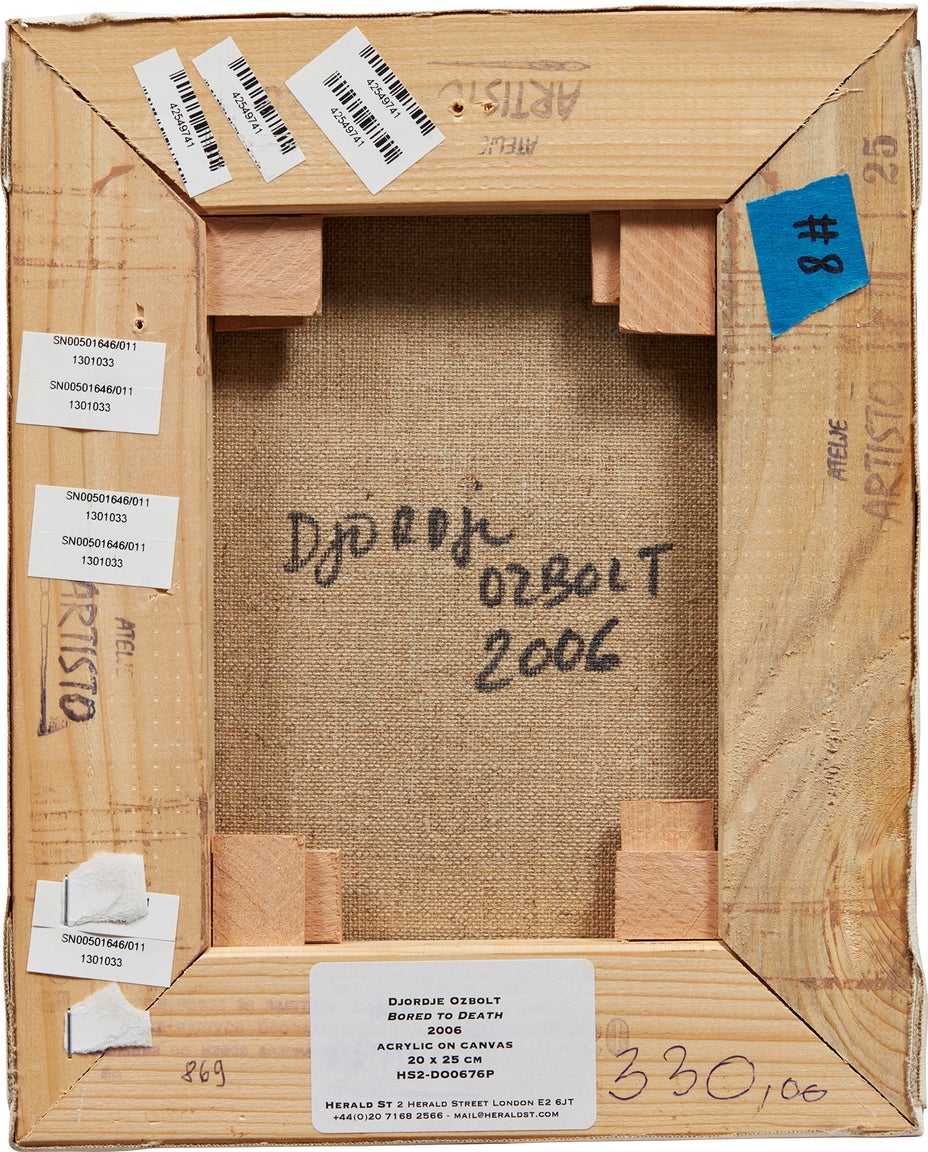 42549741
42549741
42549741
42549741
ARTISTO
ATELJE
25
#8
SN00501646/011
1301033
SN00501646/011
1301033
ATELJE
ARTISTO
SN00501646/011
1301033
SN00501646/011
1301033
DjORDje
OZBOLT
2006
ATELJE
ARTISTO
SN00501646/011
1301033
869
DJORDJE OZBOLT
BORED TO DEATH
2006
ACRYLIC ON CANVAS
20 X 25 CM
HS2-DO0676P
HERALD ST 2 HERALD STREET LONDON E2 6JT
+44(0)20 7168 2566 - MAIL@HERALDST.COM
330,00